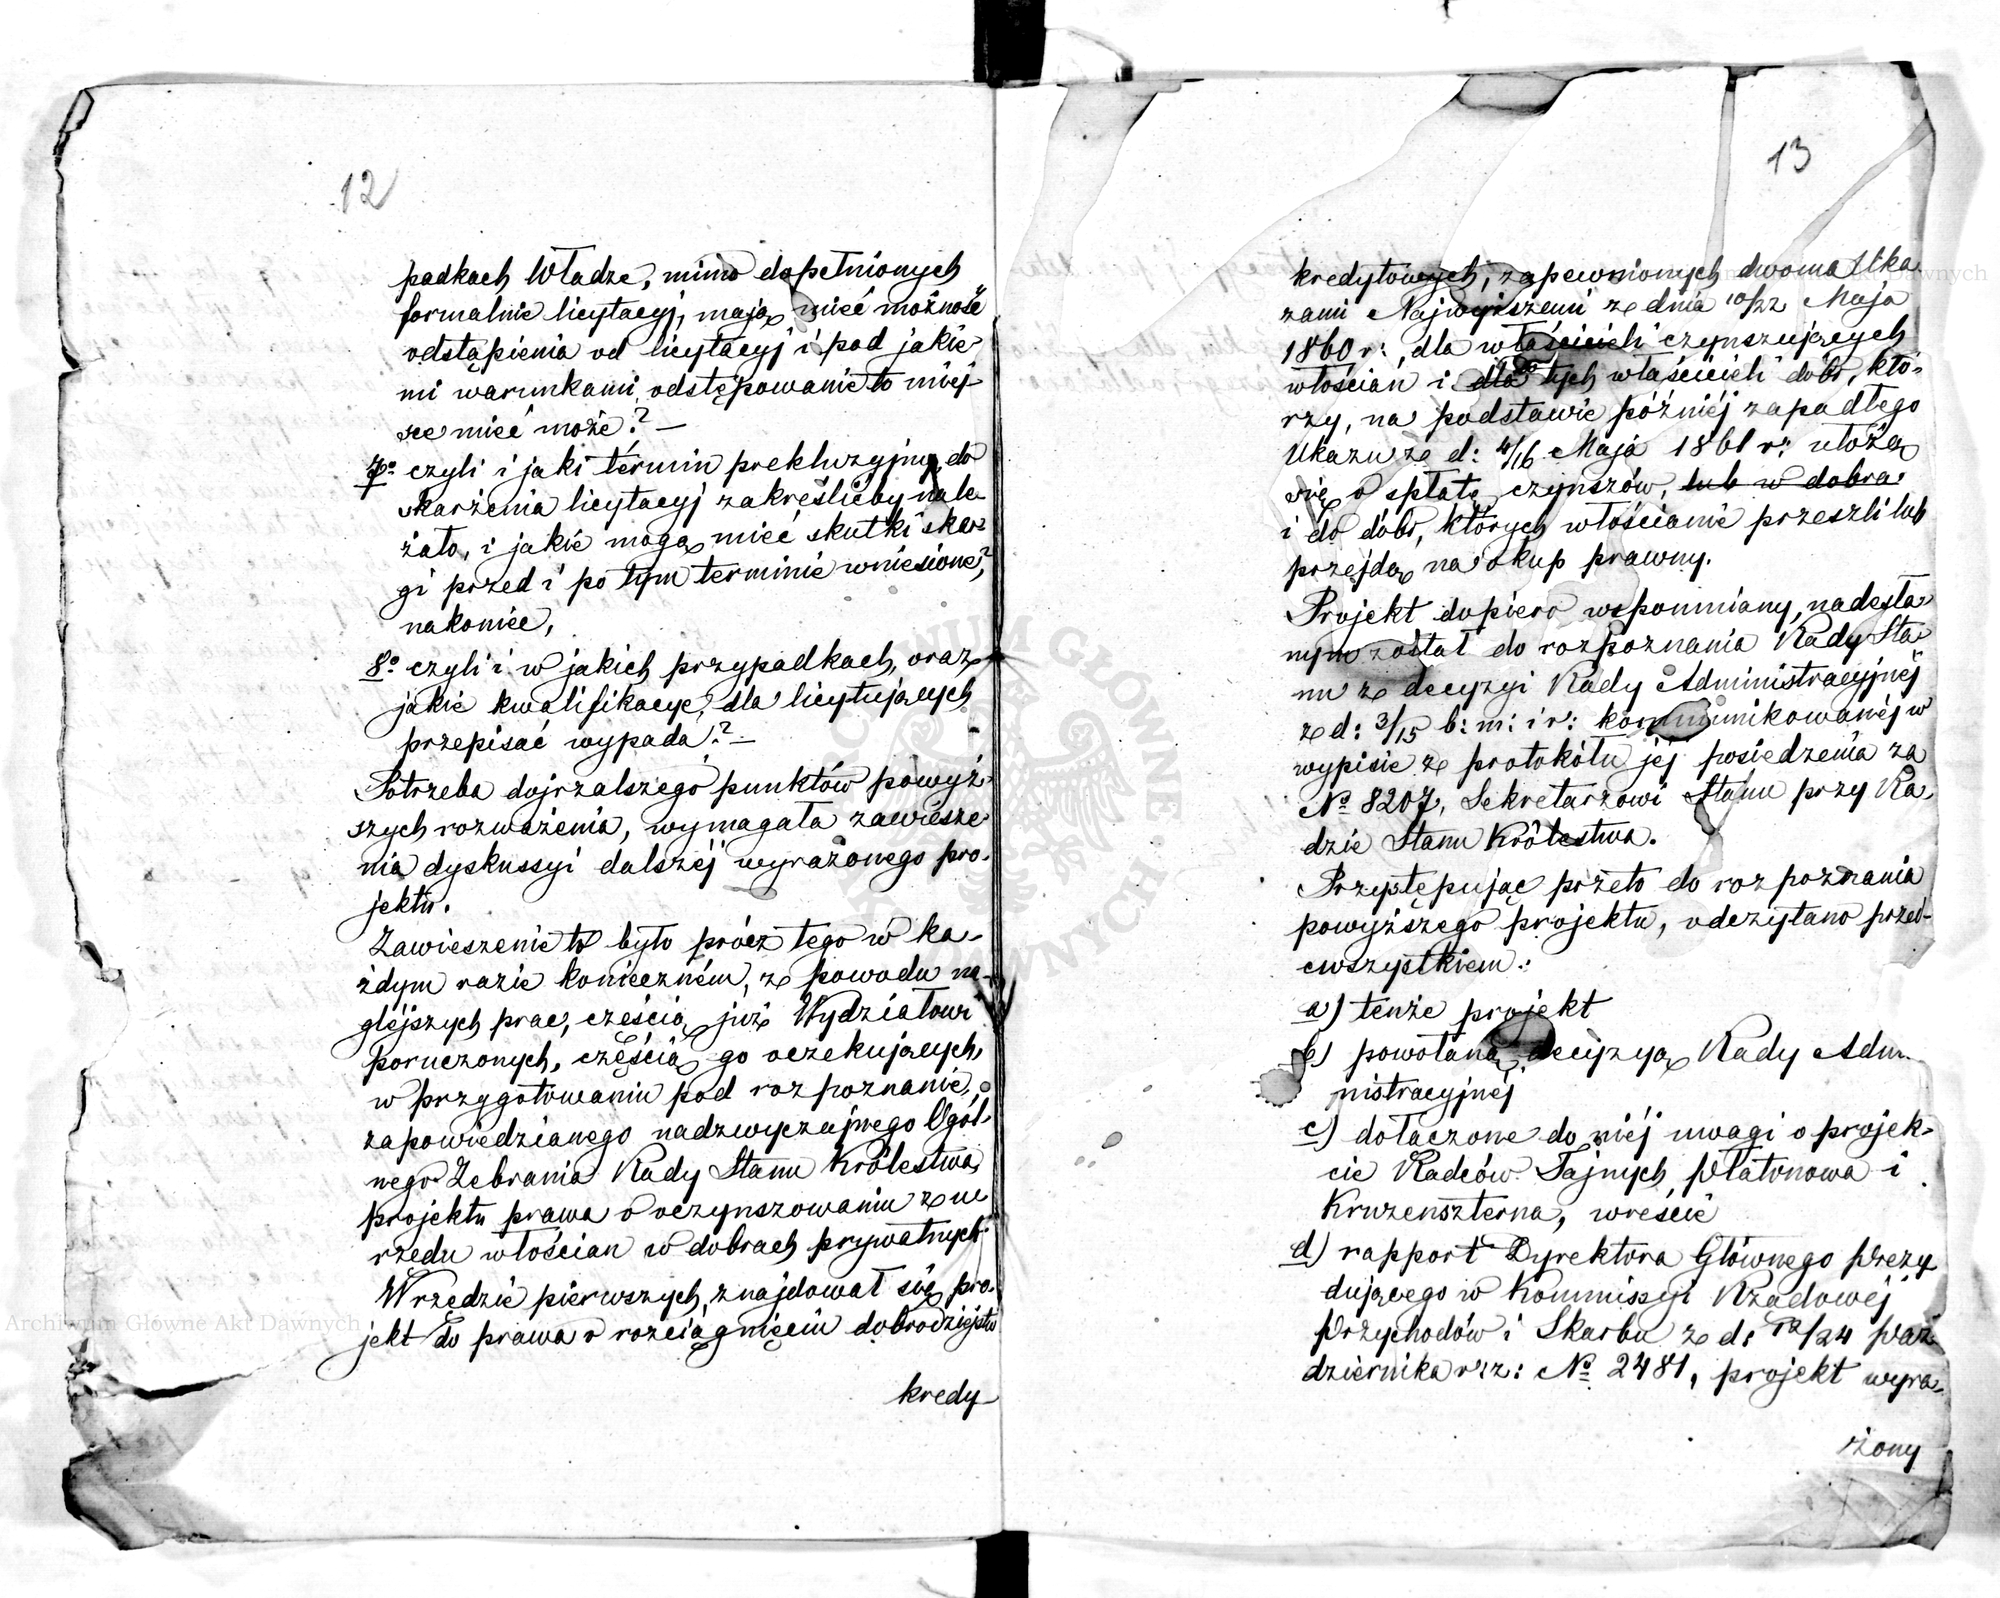 12
padkach Władze, mimo dopełnionych
formalnie licytacyj, mają mieć możność
odstąpienia od licytacyj i pod jakie-
mi warunkami odstępowanie to miej-
sce mieć może? —
7º czyli i jaki termin prekluzyjny do
skarżenia licytacyj zakreślićby nale-
żało, i jakie mogą mieć skutki skar-
gi przed i po tym terminie wniesione?
nakoniec,
8º czyli i w jakich przypadkach, oraz
jakie kwalifikacye, dla licytujących
przepisać wypada? —
Potrzeba dojrzalszego punktów powyż-
szych rozważenia, wymagała zawiesze-
nia dyskussyi dalszéj wyrażonego pro-
jektu.
Zawieszenie to było prócz tego w ka-
żdym razie konieczném, z powodu na-
glejszych prac, częścią już Wydziałowi
poruczonych, częścią go oczekujących,
w przygotowaniu pod rozpoznanie,
zapowiedzianego nadzwyczajnego Ogól-
nego Zebrania Rady Stanu Królestwa,
projektu prawa o oczynszowaniu z u-
rzędu włościan w dobrach prywatnych.
W rzędzie pierwszych, znajdował się pro-
jekt do prawa o rozciągnięciu dobrodziejstw
kredy-
13
kredytowych, zapewnionych dwoma Uka-
zami Najwyższemi z dnia 10/22 Maja
1860 r:, dla właścicieli czynszujących
włościan i do tych właścicieli dóbr, któ-
rzy, na podstawie później zapadłego
Ukazu z d: 4/16 Maja 1861 r: ułożą
się o spłatę czynszów, lub w dobra-
i do dóbr, których włościanie przeszli lub
przejdą na okup prawny.
Projekt dopiero wspomniany, nadesła-
nym został do rozpoznania Rady Sta-
nu z decyzyi Rady Administracyjnéj
z d: 3/15 b: m: i r: kommunikowanéj w
wypisie z protokółu jéj posiedzenia za
Nº 8207, Sekretarzowi Stanu przy Ra-
dzie Stanu Królestwa.
Przystępując przeto do rozpoznania
powyższego projektu, odczytano przed-
ewszystkiem:
a) tenże projekt
b) powołaną decyzyą Rady Admi-
nistracyjnéj
c) dołączone do niéj uwagi o projek-
cie Radców Tajnych Płatonowa i
Kruzenszterna, wreście
d) rapport Dyrektora Głównego Prezy-
dującego w Kommissyi Rządowéj
Przychodów i Skarbu z d: 12/24 Paź-
dziernika r: z: Nº 2481, projekt wyra-
żony
Archiwum Główne Akt Dawnych